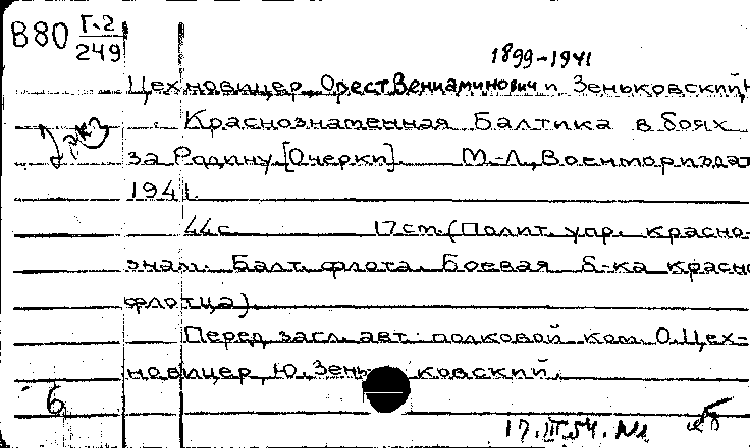 В80 Г.2
249
1899-1941
Цехновицер, Орест Вениаминович и Зеньковский,
Краснознаменная Балтика в боях
за Родину. [Очерки]. М.-Л., Военмориздат
1941.
44с. 17см. (Полит. упр. красно-
знам. Балт. флота. Боевая б-ка красно
флотца).
Перед загл. авт.: полковой ком. О. Цех-
новицер, Ю. Зеньковский.
6
17.III.54. №1